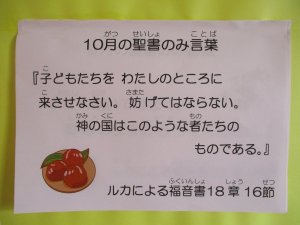 10月の聖書のみ言葉
『子どもたちを わたしのところに
来させなさい。妨げてはならない。
神の国はこのような者たちの
ものである。』
ルカによる福音書18章16節